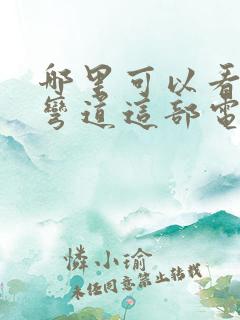 哪里可以看
彎道這部電
憐小瑜
未经同意禁止转载